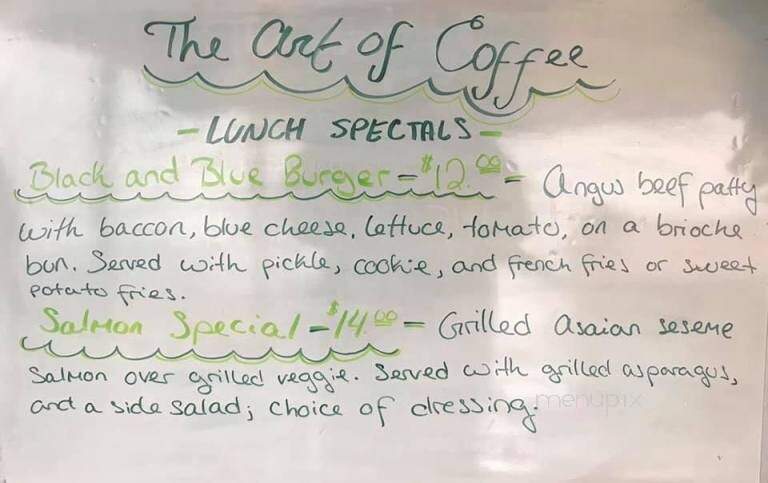 The Art of Coffee
- LUNCH SPECIALS -
Black and Blue Burger - $12.00 - Angus beef patty
with baccon, blue cheese, lettuce, tomato, on a brioche
bun. Served with pickle, cookie, and french fries or sweet
potato fries.
Salmon Special - $14.00 - Grilled Asaian seseme
Salmon over grilled veggie. Served with grilled asparagus,
and a side salad; choice of dressing.
menupix